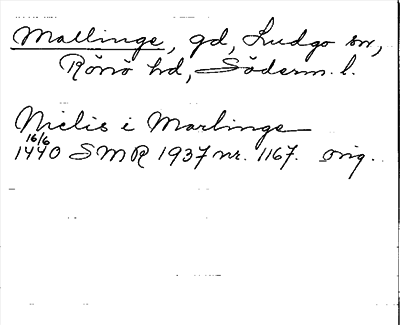 Mallinge, gd, Ludgo sn,
Rönö hd, Söderm. l.
Niclis i Marlinge
16/6
1440 SMR 1937 nr. 1167. orig.